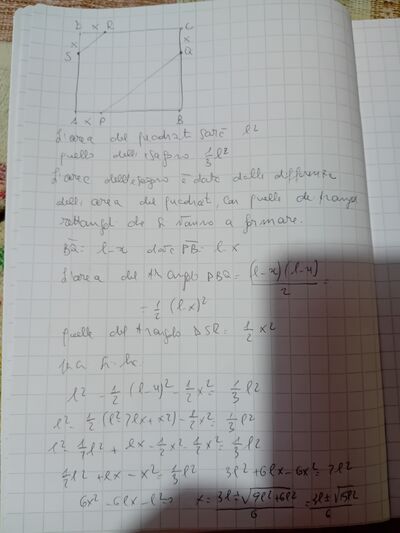 D x R C
x
S
x
Q
A x P B
L'area del quadrat sarà l²
quello dell'esagono 1/3 l²
L'area dell'esagono è data dalla differenza
dell'area del quadrat, con quelle de triang
rettangol che si vanno a formare.
BQ = l-x PB = l-x
L'area del triangolo PBQ = (l-x)(l-x)/2 =
= 1/2 (l-x)²
quella del triangolo DSR = 1/2 x²
l² - 1/2 (l-x)² - 1/2 x² = 1/3 l²
l² - 1/2 (l² - 2lx + x²) - 1/2 x² = 1/3 l²
l² - 1/2 l² + lx - 1/2 x² - 1/2 x² = 1/3 l²
1/2 l² + lx - x² = 1/3 l² 3l² + 6lx - 6x² = 2l²
6x² - 6lx - l² = 0 x = (3l ± √(9l² + 6l²))/6 = (3l ± √15l²)/6